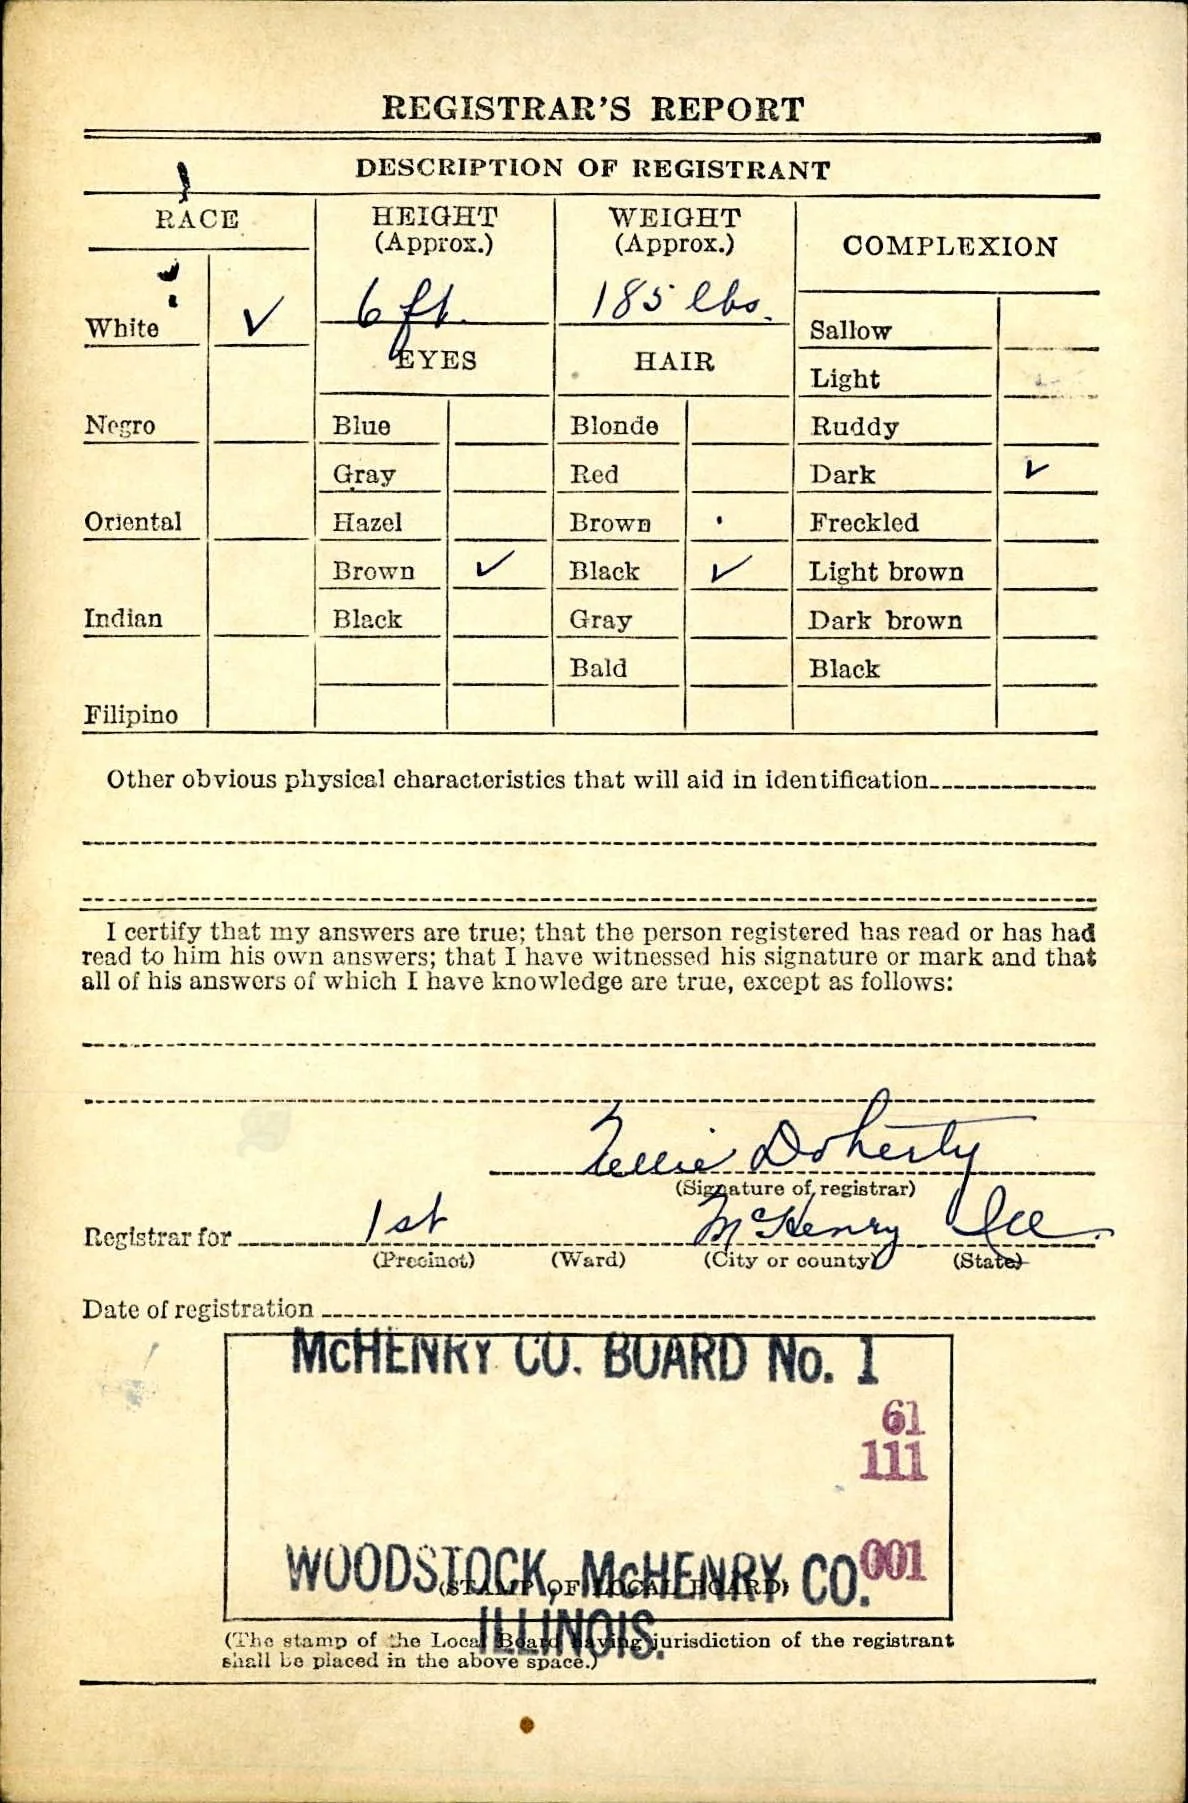 REGISTRAR'S REPORT
DESCRIPTION OF REGISTRANT
RACE
HEIGHT
(Approx.)
WEIGHT
(Approx.)
COMPLEXION
6 ft.
185 lbs.
White ✓
Sallow
EYES
HAIR
Light
Negro
Blue
Blonde
Ruddy
Gray
Red
Dark ✓
Oriental
Hazel
Brown
Freckled
Brown ✓
Black ✓
Light brown
Indian
Black
Gray
Dark brown
Bald
Black
Filipino
Other obvious physical characteristics that will aid in identification
I certify that my answers are true; that the person registered has read or has had
read to him his own answers; that I have witnessed his signature or mark and that
all of his answers of which I have knowledge are true, except as follows:
Nellie Doherty
(Signature of registrar)
Registrar for 1st McHenry Ill.
(Precinct) (Ward) (City or county) (State)
Date of registration
McHENRY CO. BOARD No. 1
61
111
001
WOODSTOCK, McHENRY CO.
(STAMP OF LOCAL BOARD)
ILLINOIS.
(The stamp of the Local Board having jurisdiction of the registrant
shall be placed in the above space.)